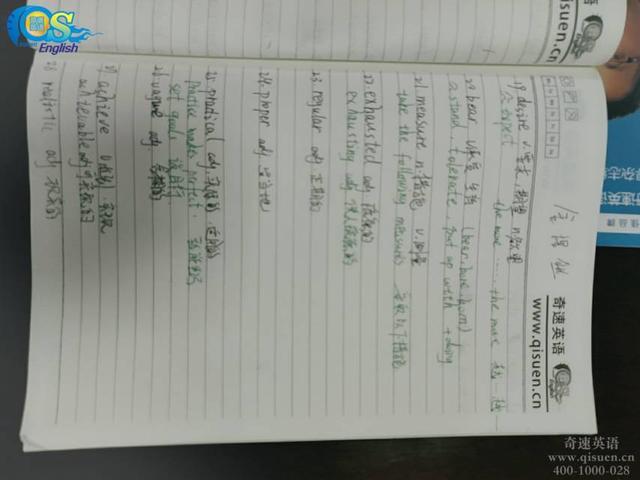 QS
English
奇速英语
www.qisuen.cn
19. desire v.要求,期望 n.欲望
expect the more ...... the more 越 越
20. bear v.忍受 (bear, bore, born)
= stand, tolerate, put up with + doing
21. measure n.措施 v.测量
take the following measures 采取以下措施
22. exhausted adj. 疲惫的
exhausting adj. 使人疲惫的
23. regular adj. 定期的
24. proper adj. 适当的
25. practical adj. 实际的
practice makes perfect. 熟能生巧
set goals 设目标
26. vague adj. 含糊的
27. achieve v.
achievable adj.
28 realistic adj. 现实的
奇速英语
www.qisuen.cn
奇速英语
www.qisuen.cn
400-1000-028